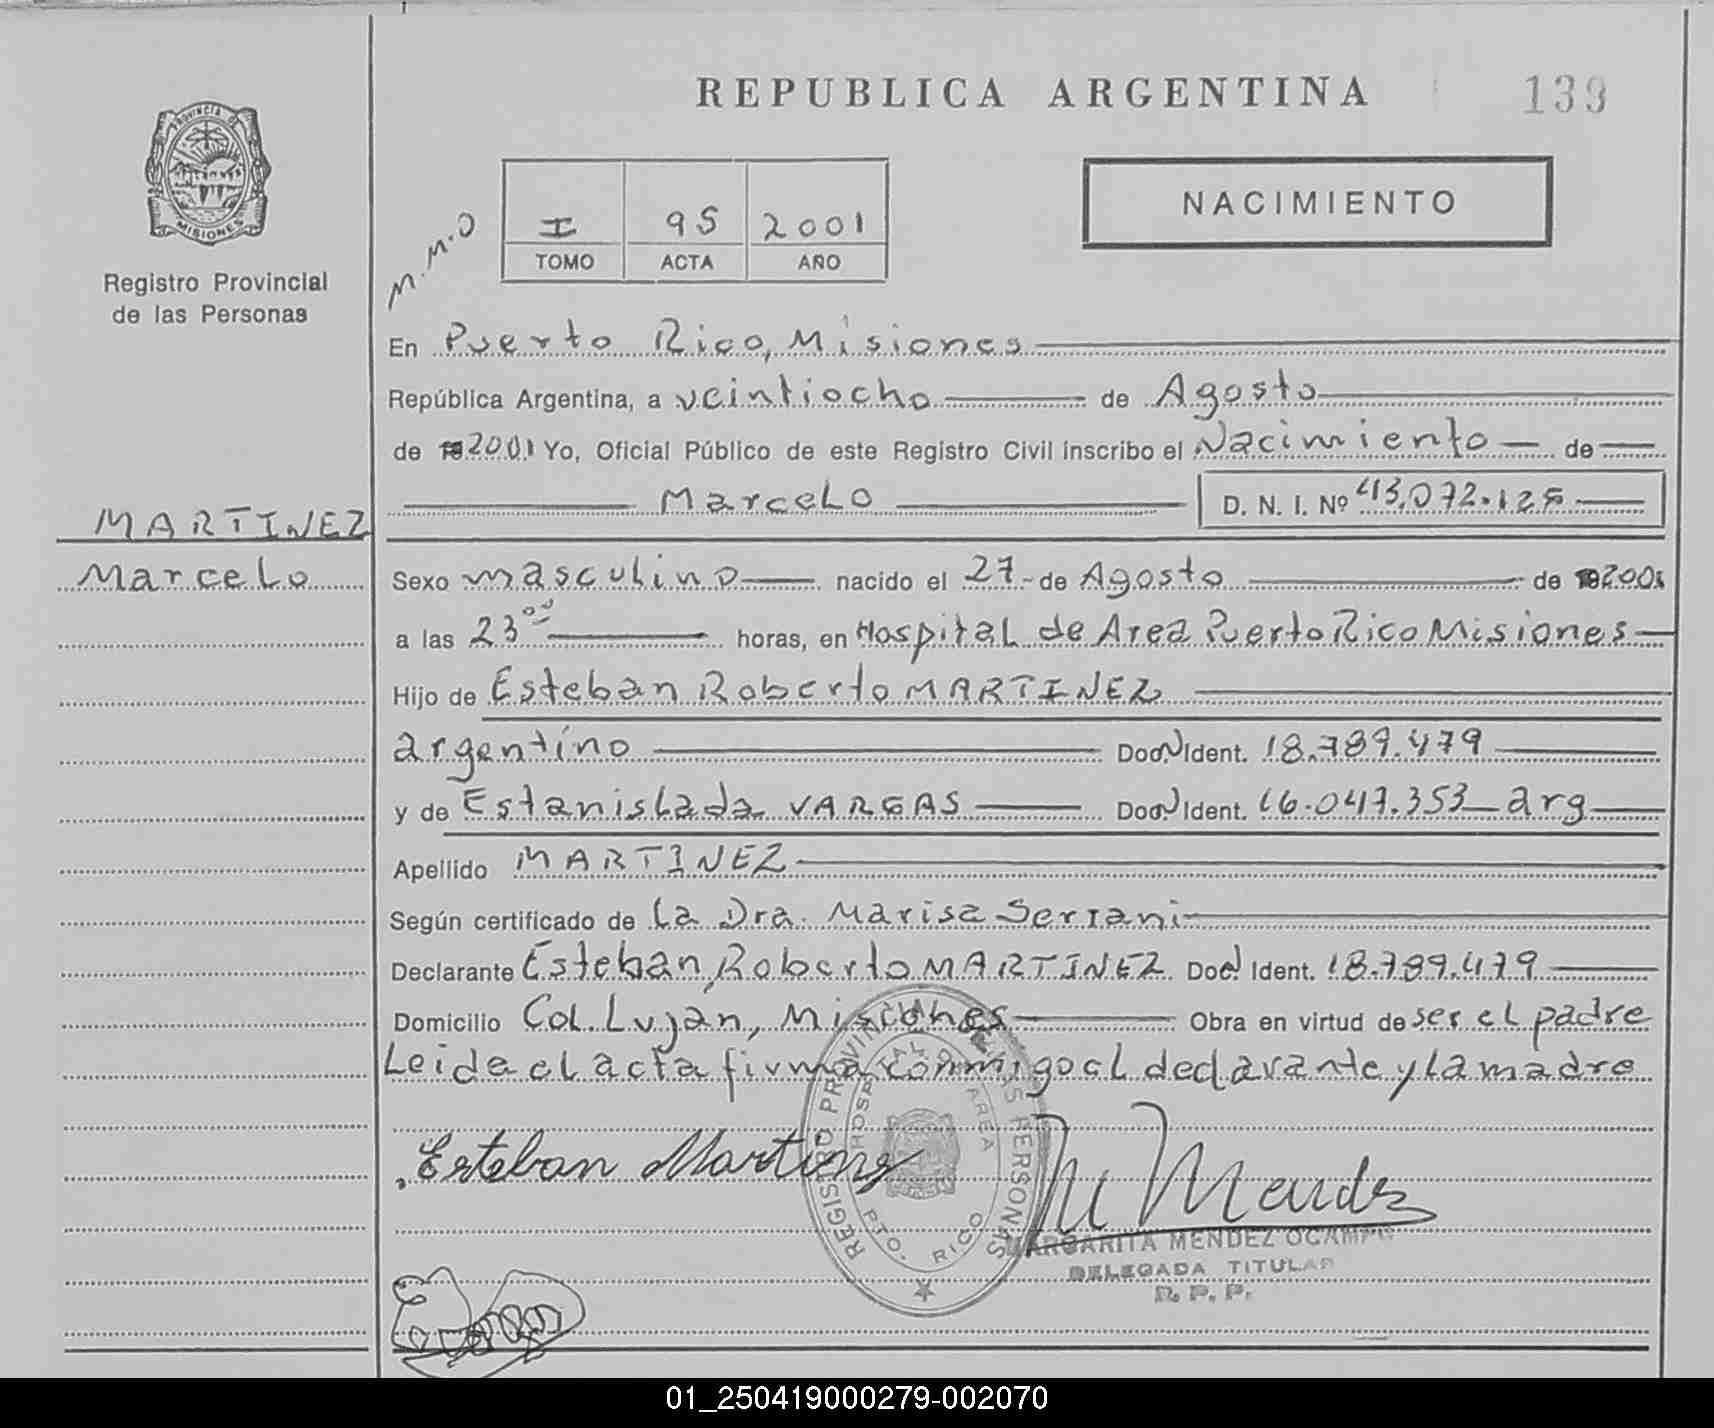 REPUBLICA ARGENTINA
139
PROVINCIA DE
MISIONES
Registro Provincial
de las Personas
M.M.O
I 95 2001
TOMO ACTA AÑO
NACIMIENTO
En Puerto Rico, Misiones
República Argentina, a veintiocho de Agosto
de 19 2001 Yo, Oficial Público de este Registro Civil inscribo el Nacimiento de
Marcelo D. N. I. Nº 43.072.128
MARTINEZ
Marcelo
Sexo masculino nacido el 27 de Agosto de 19 2001
a las 23 00 horas, en Hospital de Area Puerto Rico Misiones
Hijo de Esteban Roberto MARTINEZ
argentino Doc. N Ident. 18.789.479
y de Estanislada VARGAS Doc. N Ident. 16.047.353 arg
Apellido MARTINEZ
Según certificado de la Dra. Marisa Serrani
Declarante Esteban Roberto MARTINEZ Doc. Ident. 18.789.479
Domicilio Col. Luján, Misiones Obra en virtud de ser el padre
Leida el acta firma conmigo el declarante y la madre
Esteban Martinez
REGISTRO PROVINCIAL DE LAS PERSONAS
HOSPITAL DE AREA
PTO. RICO
M Mendez
MARGARITA MENDEZ OCAMPO
DELEGADA TITULAR
R. P. P.
01_250419000279-002070